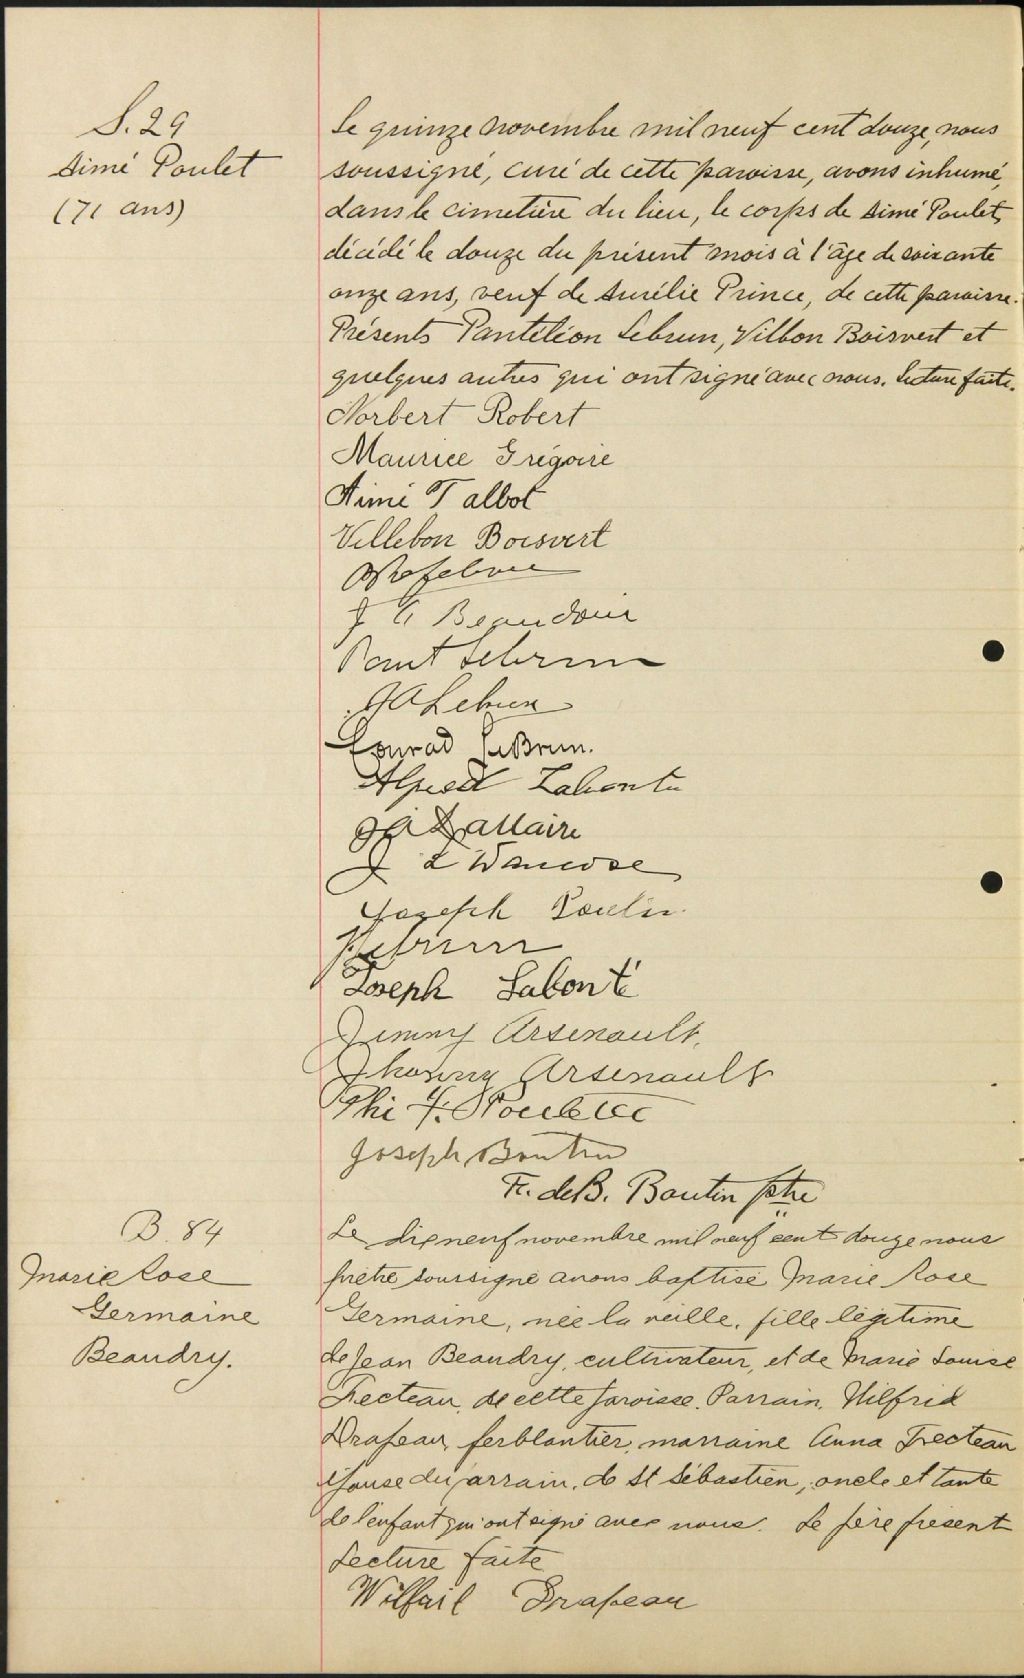 S. 29
Aimé Poulet
(71 ans)
Le quinze novembre mil neuf cent douze, nous
soussigné, curé de cette paroisse, avons inhumé,
dans le cimetière du lieu, le corps de Aimé Poulet,
décédé le douze du présent mois à l'âge de soixante
onze ans, veuf de Aurélie Prince, de cette paroisse.
Présents Pantéléon Lebrun, Vilbon Boisvert et
quelques autres qui ont signé avec nous. Lecture faite.
Norbert Robert
Maurice Grégoire
Aimé Talbot
Villebon Boisvert
Lefebvre
J A Beaudoin
Pant Lebrun
J A Lebrun
Conrad LeBrun.
Alfred Labonté
J A Dallaire
J L
Joseph Poulin
Lebrun
Joseph Labonté
Jimmy Arsenault,
Jhonny Arsenault
Phi F. Poulette
Joseph Boutin
Fr. deB. Boutin ptre
B. 84
Marie Rose
Germaine
Beaudry.
Le dix neuf novembre mil neuf cent douze nous
prêtre soussigné avons baptisé Marie Rose
Germaine, née la veille, fille légitime
de Jean Beaudry, cultivateur, et de Marie Louise
Fecteau, de cette paroisse. Parrain, Wilfrid
Drapeau, ferblantier, marraine Anna Fecteau
épouse du parrain, de St Sébastien, oncle et tante
de l'enfant qui ont signé avec nous. Le père présent
Lecture faite
Wilfrid Drapeau